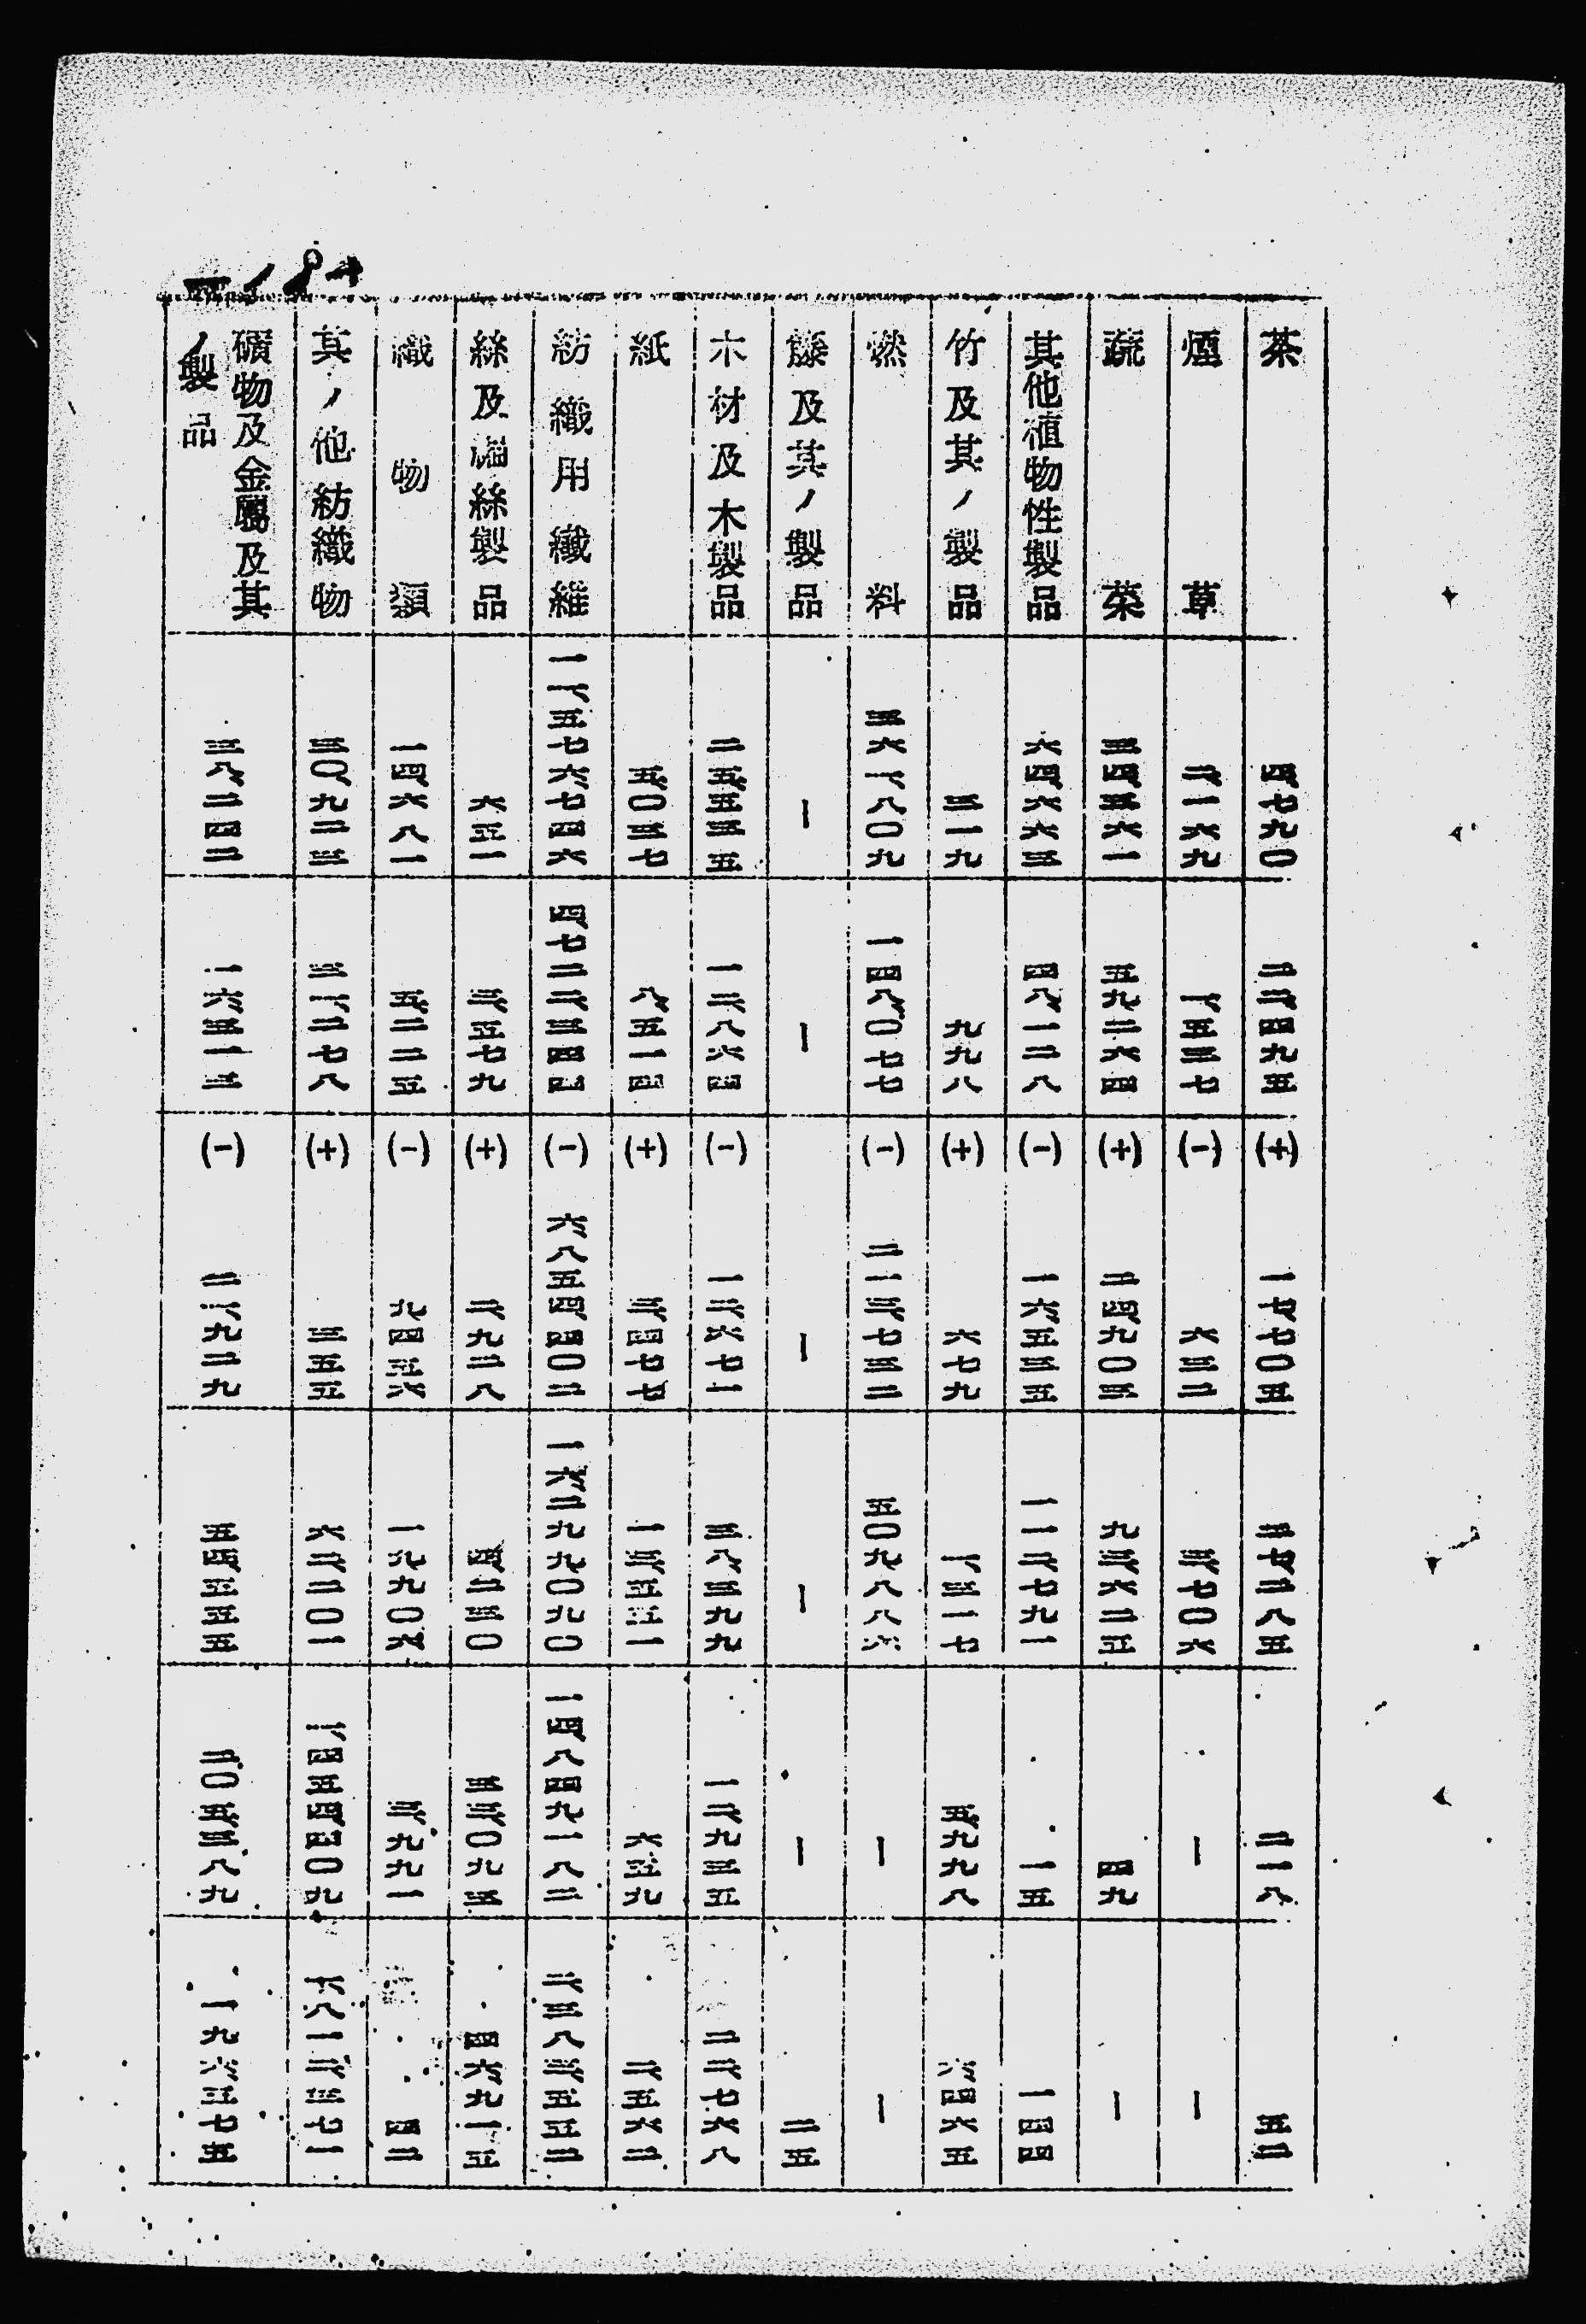 茶 四七九〇 二二四九五 (+) 一七七〇五 二七二八五 二一八 五二
煙草 二一六九 一五三七 (-) 六三二 三七〇六 ー ー
蔬菜 三四三六一 五九二六四 (+) 二四九〇三 九三六二五 四九 ー
其他植物性製品 六四六六三 四八一二八 (-) 一六五三五 一一二七九一 一五 一四四
竹及其ノ製品 三一九 九九八 (+) 六七九 一三一七 五九九八 六四六五
燃料 三六一八〇九 一四八〇七七 (-) 二一三七三二 五〇九八八六 ー ー
藤及其ノ製品 ー ー ー ー ー 二五
木材及木製品 二五五三五 一二八六四 (-) 一二六七一 三八三九九 一二九三五 二二七六八
紙 五〇三七 八五一四 (+) 三四七七 一三五五一 六五九 二五六二
紡織用纖維 一一五七六七四六 四七二二三四四 (-) 六八五四四〇二 一六二九九〇九〇 一四八四九一八二 二三八三五五二
絲及編絲製品 六五一 三五七九 (+) 二九二八 四二三〇 三三〇九三 四六九一五
織物類 一四六八一 五二二五 (-) 九四五六 一九九〇六 三九九一 四二
其ノ他紡織物 三〇九二三 三一二七八 (+) 三五五 六二二〇一 一四五四四〇九 一八一二三七一
礦物及金屬及其
ノ製品 三八二四二 一六三一三 (-) 二一九二九 五四五五五 二〇五三八九 一九六五七五